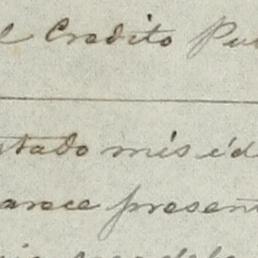 l Credito Pu
stado mis id
arece present